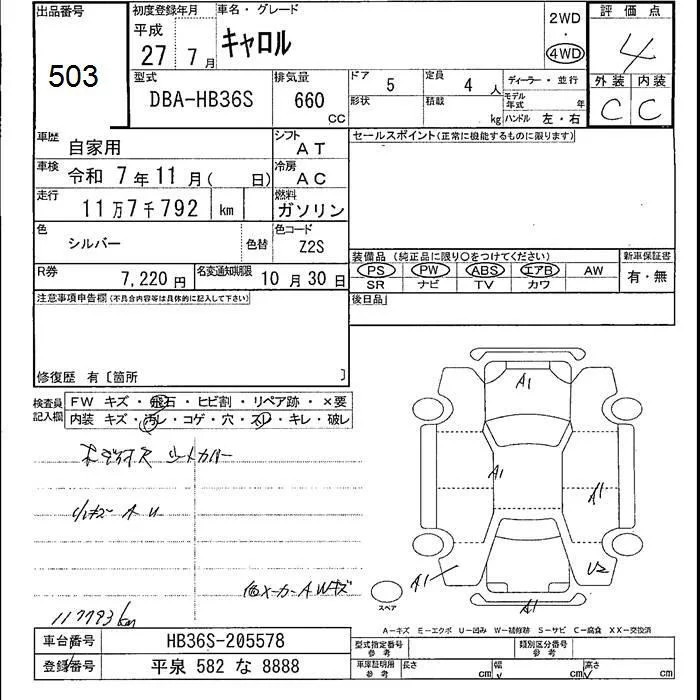 出品番号
503
初度登録年月
平成
27年 7月
車名・グレード
キャロル
2WD
・
4WD
評価点
4
外装 内装
C C
型式
DBA-HB36S
排気量
660
CC
ドア 5
定員 4 人
形状
積載 kg
ディーラー・並行
モデル年式 年
ハンドル 左・右
車歴 自家用
シフト AT
車検 令和 7年 11月( 日)
冷房 AC
走行 11万7千792 km
燃料 ガソリン
色 シルバー
色替
色コード Z2S
R券 7,220円
名変通知期限 10月30日
セールスポイント(正常に機能するものに限ります)
装備品(純正品に限り○をつけてください)
PS PW ABS エアB AW
SR ナビ TV カワ
新車保証書
有・無
後日品
注意事項申告欄(不具合内容等は具体的に記入して下さい)
修復歴 有〔箇所 〕
検査員記入欄
FW キズ・飛石・ヒビ割・リペア跡・×要
内装 キズ・汚レ・コゲ・穴・スレ・キレ・破レ
シートカバー
小キズ A U
117793km
A1
A1
A1
A1
U2
A1
スペア
A-キズ E-エクボ U-凹み W-補修跡 S-サビ C-腐食 XX-交換済
車台番号 HB36S-205578
登録番号 平泉 582 な 8888
型式指定番号 参考
類別区分番号 参考
車庫証明用 参考
長さ cm
幅 cm
高さ cm